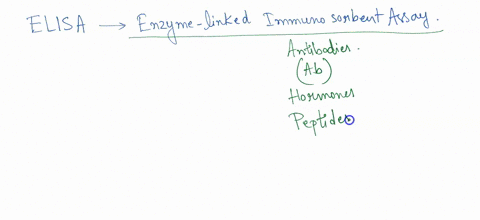 ELISA → Enzyme-linked Immuno sorbent Assay.
Antibodies.
(Ab)
Hormones
Peptides